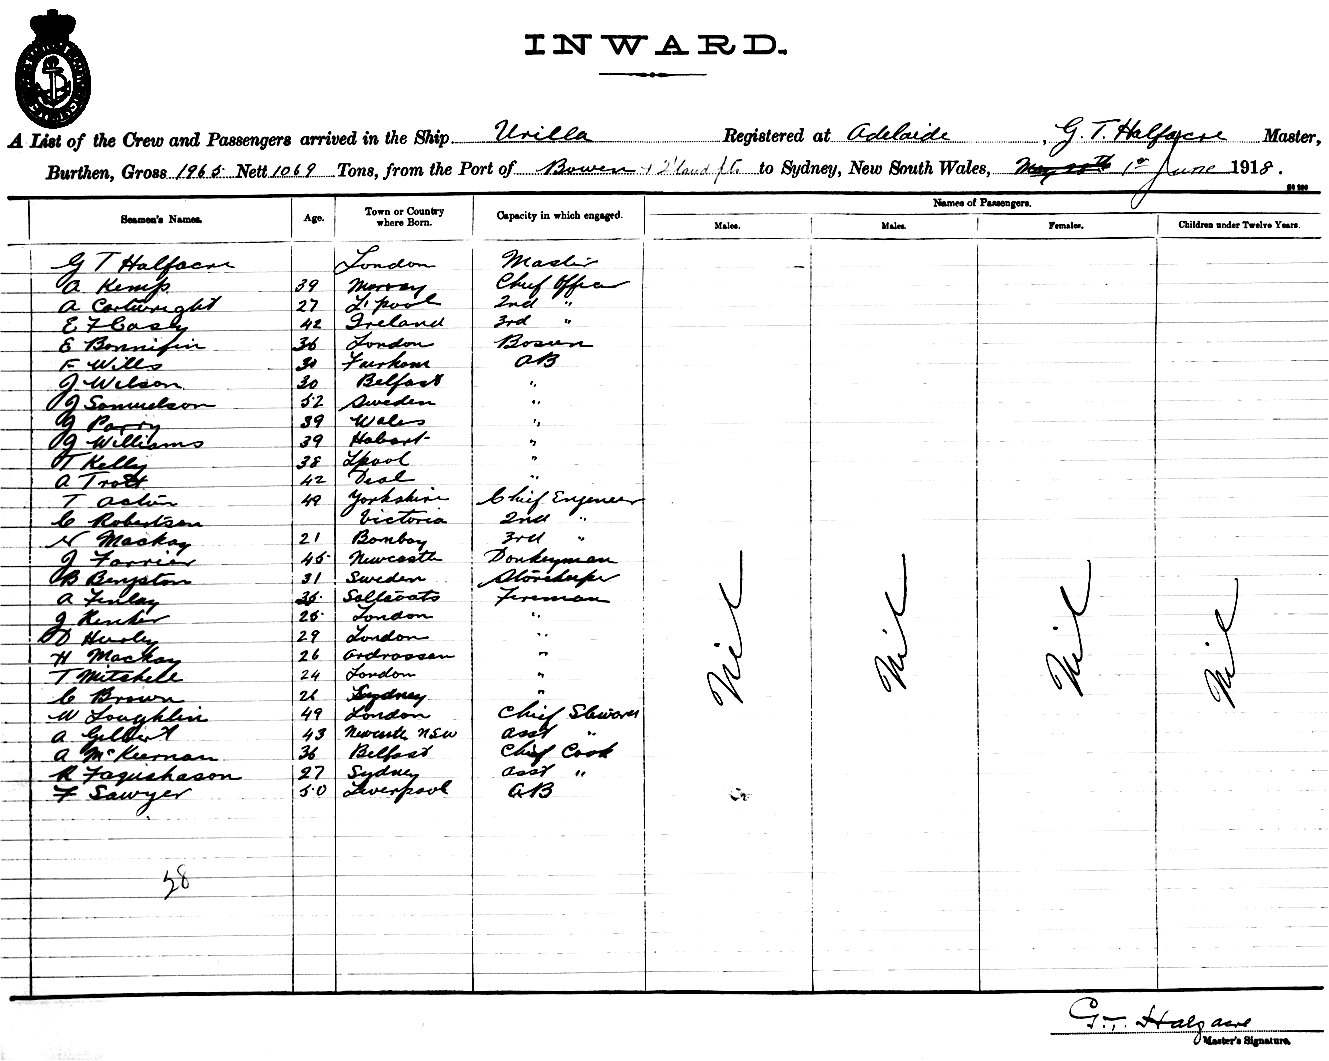 INWARD.
A List of the Crew and Passengers arrived in the Ship Urilla Registered at Adelaide, G. T. Halfacre Master,
Burthen, Gross 1965 Nett 1069 Tons, from the Port of Bowen to Sydney, New South Wales, 1st June 1918.
Names of Passengers.
Seamen's Names. Age. Town or Country where Born. Capacity in which engaged. Males. Males. Females. Children under Twelve Years.
G T Halfacre London Master
A Kemp 39 Moray Chief Officer
A Cartwright 27 L'pool 2nd "
E F Casey 42 Ireland 3rd "
E Bonnifin 36 London Bosun
F Wills Fareham AB
J Wilson 30 Belfast "
J Samuelson 52 Sweden "
J Parry 39 Wales "
J Williams 39 Hobart "
T Kelly 38 Lpool "
A Trott 42 Deal "
T Acton 49 Yorkshire Chief Engeneer
C Robertson Victoria 2nd "
N Mackay 21 Bombay 3rd "
J Farrier 45 Newcastle Donkeyman
B Bengston 31 Sweden Storekeeper
A Finlay 35 Saltcoats Fireman
J Renker 25 London "
D Hurley 29 London "
H Mackay 26 Ardrossan "
T Mitchell 24 London "
C Brown 26 Sydney "
W Loughlin 49 London Chief Steward
A Gilbert 43 Newcastle NSW asst "
A McKiernan 36 Belfast Chief Cook
R Faqushason 27 Sydney asst "
F Sawyer 50 Liverpool AB
Nil Nil Nil Nil
28
G. T. Halfacre
Master's Signature.